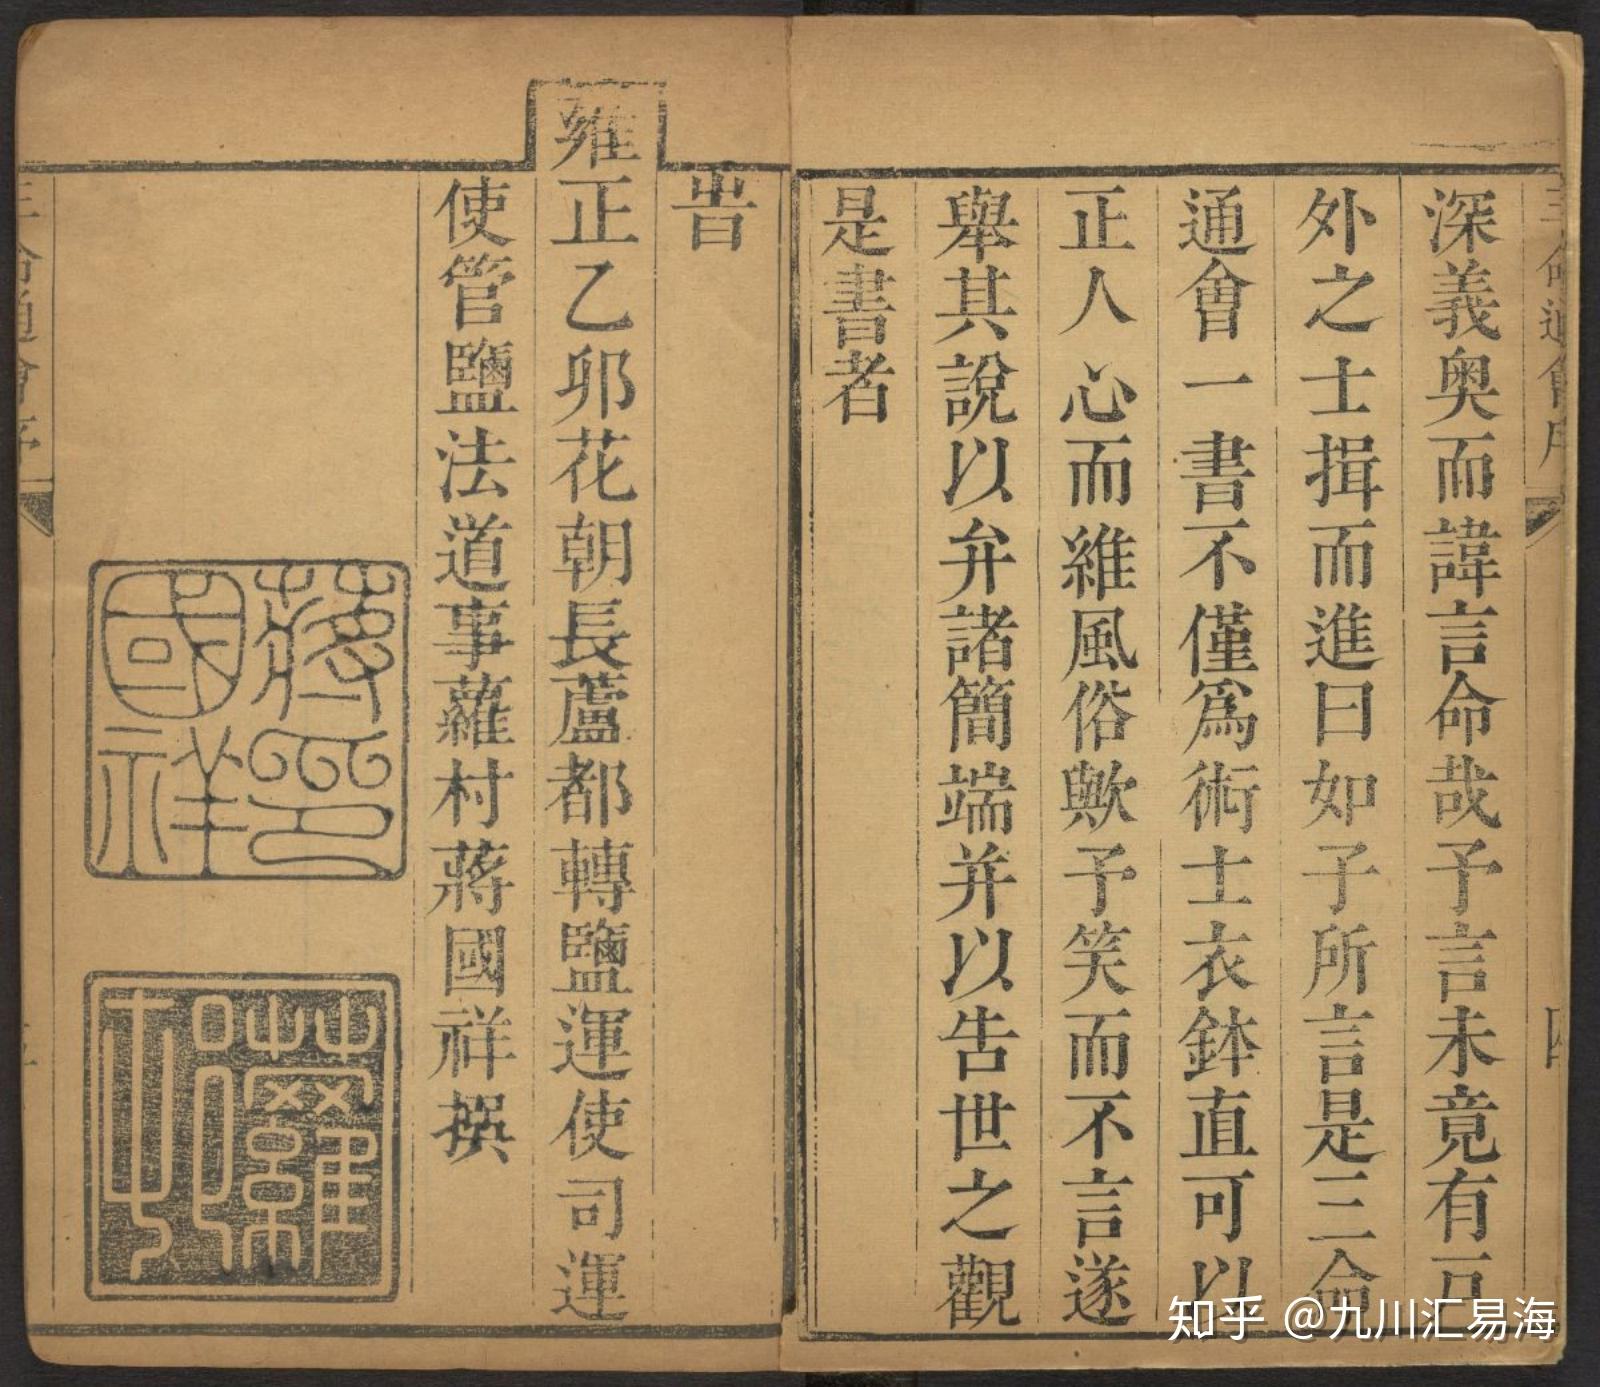 深義奥而諱言命哉予言未竟有言
外之士揖而進曰如子所言是三命
通會一書不僅爲術士衣鉢直可以
正人心而維風俗歟予笑而不言遂
舉其說以弁諸簡端并以告世之觀
是書者
旹
雍正乙卯花朝長蘆都轉鹽運使司運
使管鹽法道事蘿村蔣國祥撰
蔣國祥印
蘿村
三命通會序
四
三命通會序
知乎 @九川汇易海